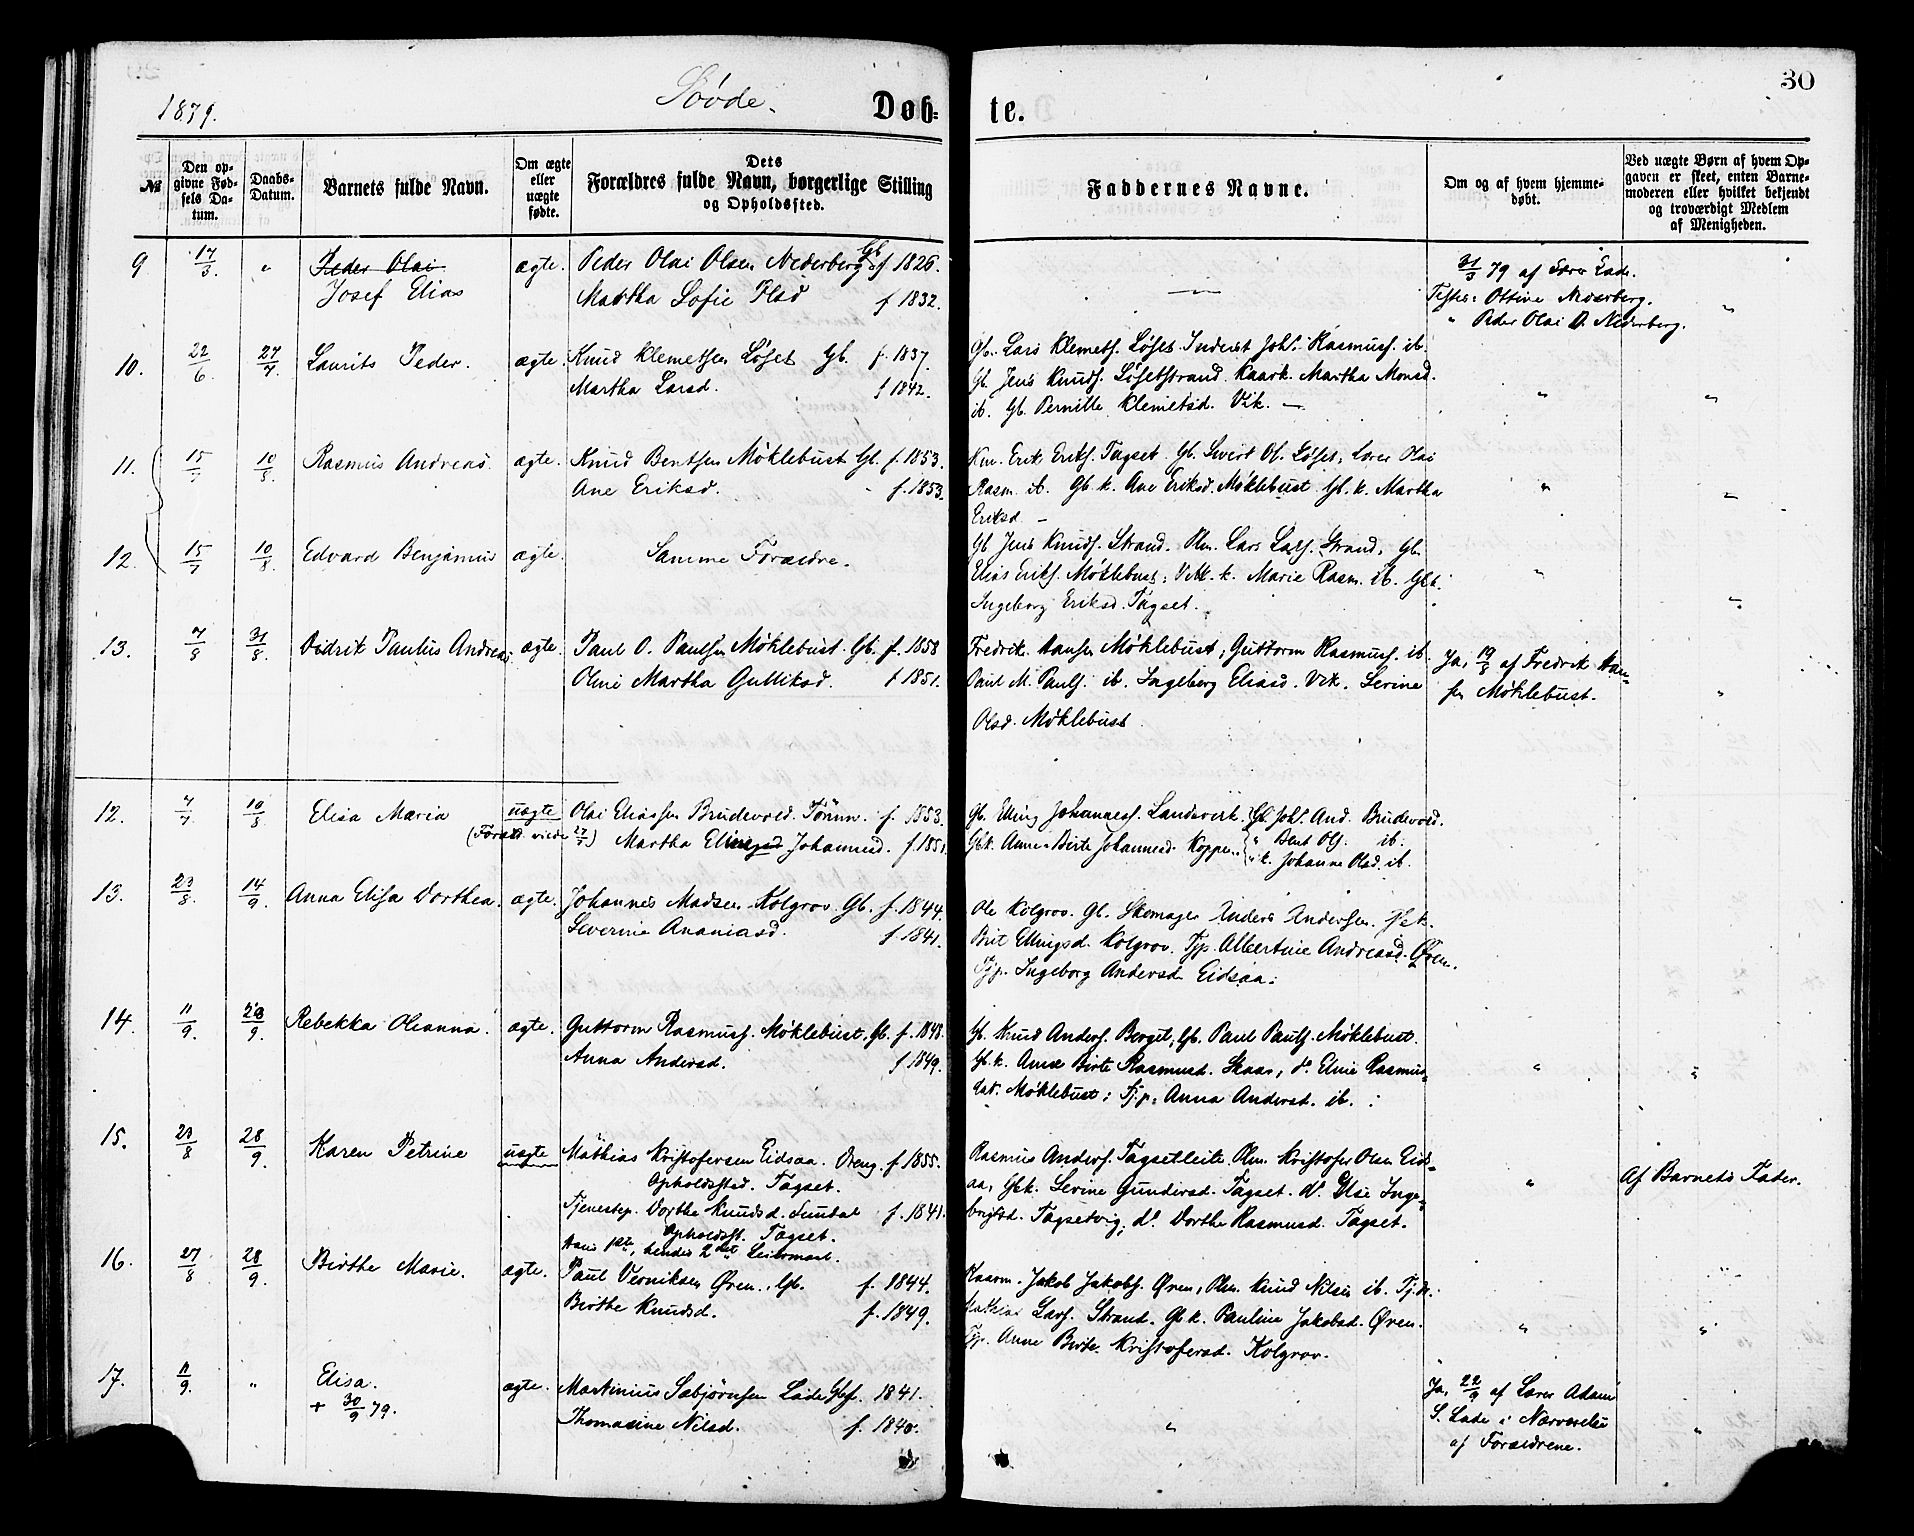 30
1879.
Søvde.
Døb-
te.
№
Den op-
givne Fød-
sels Da-
tum.
Daabs-
Datum.
Barnets fulde Navn.
Om ægte
eller
uægte
fødte.
Dets
Forældres fulde Navn, borgerlige Stilling
og Opholdssted.
Faddernes Navne.
Om og af hvem hjemme-
døbt.
Ved uægte Børn af hvem Op-
gaven er skeet, enten Barne-
moderen eller hvilket bekjendt
og troværdigt Medlem
af Menigheden.
9 17/3 " Peder Olai ægte. Peder Olai Olsen Nederberg Gb. f 1826.
Josef Elias Martha Sofie Flsd f 1832.
31/3 79 af Lærer Lade.
Testes: Ottine Nederberg.
" Peder Olai O. Nederberg. "
10. 22/6 27/7 Laurits Peder. ægte. Knud Klemetsen Løset Gb. f. 1837.
Martha Larsd. f 1842.
Gb. Lars Klemets. Løset. Inderst Johs. Rasmuss. ib.
Gb. Jens Knuds. Løsetstrand. Kaark. Martha Monsd.
ib. Gb. Pernille Klemetsd. Vik. — " "
11. 15/7 10/8 Rasmus Andreas. ægte. Knud Bentsen Møklebust Gb. f. 1853.
Ane Eriksd. f. 1853.
Km. Erik Eriks. Tagset. Gb. Sivert Ol. Løset; Lærer Olai
Rasm. ib. Gb. k. Ane Eriksd. Møklebust Gb. k. Martha
Eriksd. — " "
12. 15/7 10/8 Edvard Benjamin ægte. Samme Forældre.
Gb Jens Knuds. Strand. Plm. Lars Lars. Strand. Gb.
Elias Eriks. Møklebust; k. Marie Rasm. ib. Gbk.
Ingeborg Eriksd. Tagset. " "
13. 7/8 31/8 Didrik Paulus Andreas. ægte. Paul O. Paulsen Møklebust. Gb. f. 1858
Oline Martha Gulliksd. f 1851.
Fredrik Hansen Møklebust; Guttorm Rasmuss. ib.
Paul M. Pauls. ib. Ingeborg Eliasd. Vik. Serine
Olsd. Møklebust.
Ja, 19/8 af Fredrik Han-
sen Møklebust. "
12. 7/7 10/8 Elisa Maria uægte Olai Eliassen Brudevold. f. 1853.
(Foræld. viede 27/7) Martha Johannesd. f. 1851.
Gb. Elling Johanness. Landevik. Gb. Johs. And. Brudevold.
Gbk. Anne-Birte Johannesd. Koppen. " Bent Ols. ib.
k. Johanne Olsd. ib.
13. 23/8 14/9 Anna Elisa Dorthea. ægte. Johannes Madsen Kolgrov. Gb. f. 1844.
Severine Ananiasd. f 1841.
Ole Kolgrov. Gb. Skomager Anders Andersen.
Brit Ellingsd. Kolgrov. Tjp. Albertine Andreasd. Øren.
Tjp. Ingeborg Andersd. Eidsaa.
14. 11/9 28/9 Rebekka Oleanna. ægte. Guttorm Rasmuss. Møklebust. Gb. f. 1848.
Anna Andersd. f 1849.
Gb. Knud Anders. Berget, Gb. Paul Pauls. Møklebust.
Gb. k. Anne Birte Rasmusd. Skaar, do. Eline Rasmus-
dat. Møklebust; Tj.p. Anna Andersd. ib. " "
15. 23/8 28/9 Karen Petrine uægte Mathias Kristofersen Eidsaa. Dreng. f. 1855.
Opholdssted. Tagset.
Tjenestep. Dorthe Knudsd. Sundal f. 1841.
Opholdsst. Tagset.
Hans 1ste, hendes 2det Leiermaal.
Rasmus Anders. Tagsetleite. Plm. Kristofer Olsen Eids-
aa, Gbk. Serine Gundersd. Tagset. do. Else Inge-
brigtsd. Tagsetvig; do. Dorthe Rasmusd. Tagset.
" Af Barnets Fader.
16. 27/8 28/9 Birthe Marie. ægte. Paul Verniksen Øren. Gb. f. 1844.
Birthe Knudsd. f. 1849.
Kaarm. Jakob Jakobs. Øren, Plm. Knud Nilsen ib. Tj.k.
Mathias Lars. Strand. Gb k. Pauline Jakobsd. Øren.
Tjp. Anne Birte Kristofersd. Kolgrov. " "
17. 11/9 " Elisa. ægte. Martinius Sæbjørnsen Lade Gb f. 1841.
+ 30/9 79. Thomasine Nilsd. f. 1840.
" Ja, 22/9 af Lærer Adam
S. Lade i Nærværelse
af Forældrene. "